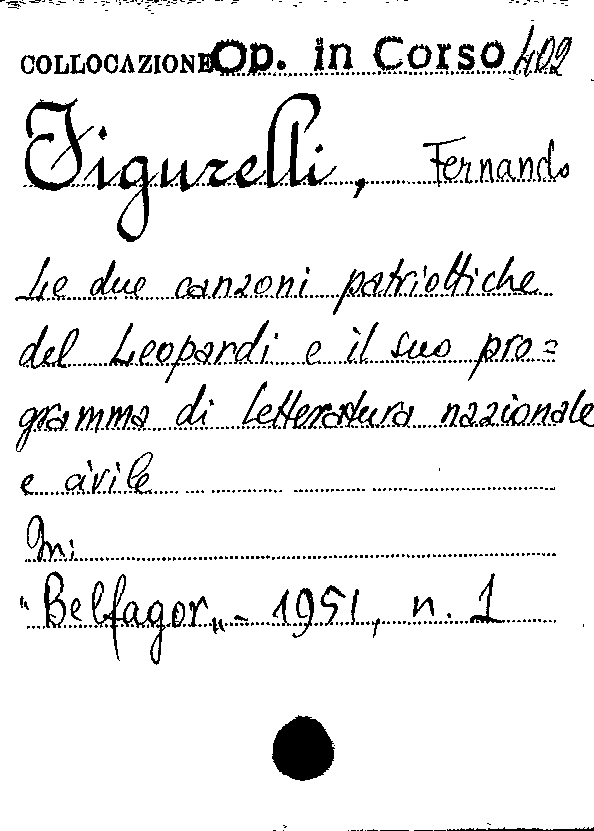 COLLOCAZIONE Op. in Corso 402
Figurelli, Fernando
Le due canzoni patriottiche
del Leopardi e il suo pro=
gramma di letteratura nazionale
e civile
In:
"Belfagor„ - 1951, n. 1